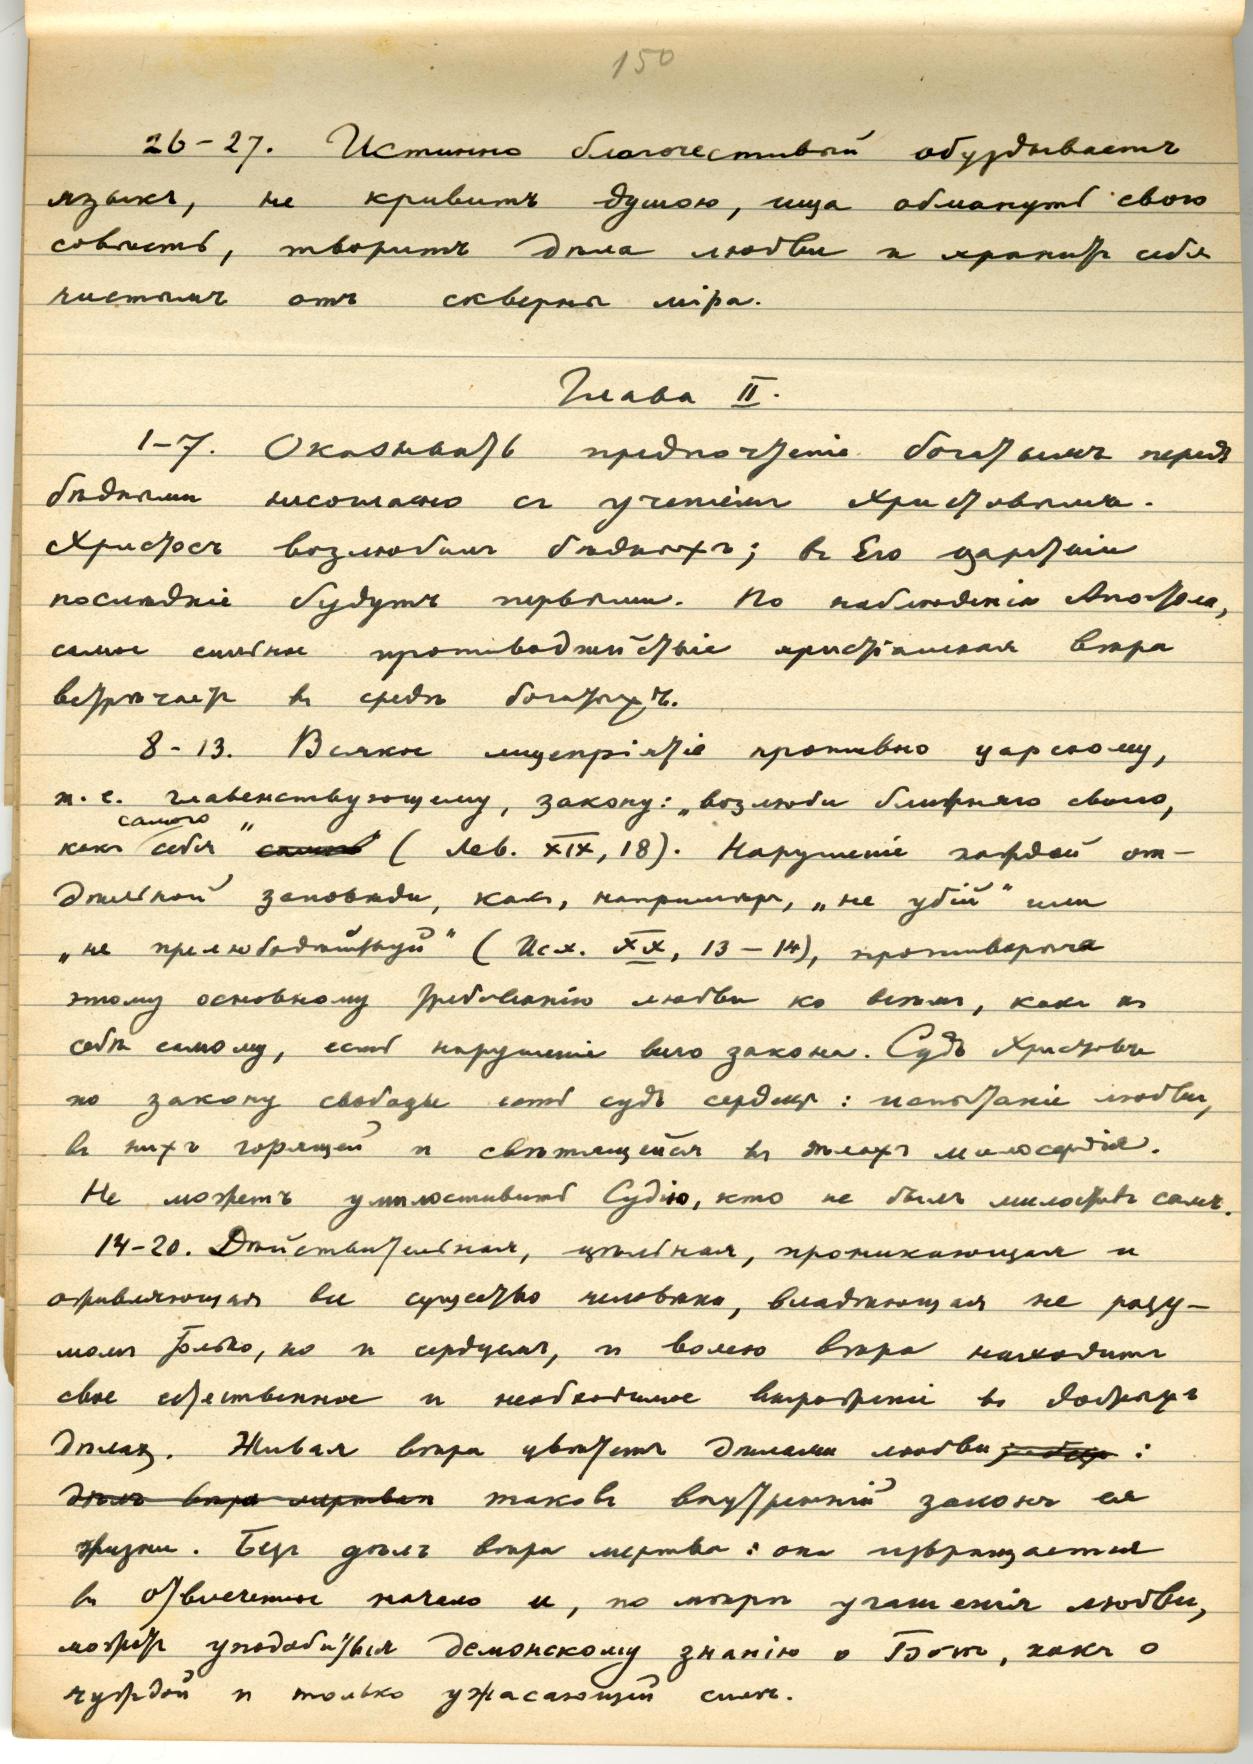 150
26-27. Истинно благочестивый обуздываетъ
языкъ, не кривитъ душою, ища обмануть свою
совѣсть, творитъ дѣла любви и хранитъ себя
чистымъ отъ скверны міра.
Глава II.
1-7. Оказывать предпочтеніе богатымъ передъ
бѣдными несогласно съ ученіемъ Христовымъ.
Христосъ возлюбилъ бѣдныхъ; въ Его царствіи
послѣдніе будутъ первыми. По наблюденію Апостола,
самое сильное противодѣйствіе христіанская вѣра
встрѣчаетъ въ средѣ богатыхъ.
8-13. Всякое лицепріятіе противно царскому,
т. е. главенствующему, закону: „возлюби ближняго своего,
какъ самого себя“ (Лев. XIX, 18). Нарушеніе каждой от-
дѣльной заповѣди, какъ, напримѣръ, „не убій“ или
„не прелюбодѣйствуй“ (Исх. XX, 13-14), противорѣча
этому основному требованію любви ко всѣмъ, какъ къ
себѣ самому, есть нарушеніе всего закона. Судъ Христовъ
по закону свободы есть судъ сердецъ: испытаніе любви,
въ нихъ горящей и свѣтящейся въ дѣлахъ милосердія.
Не можетъ умилостивить Судію, кто не былъ милостивъ самъ.
14-20. Дѣйствительная, цѣльная, проникающая и
оживляющая все существо человѣка, владѣющая не разу-
момъ только, но и сердцемъ, и волею вѣра находитъ
свое естественное и необходимое выраженіе въ добрыхъ
дѣлахъ. Живая вѣра цвѣтетъ дѣлами любви :
дѣлъ вѣра мертва таковъ внутренній законъ ея
жизни. Безъ дѣлъ вѣра мертва: она извращается
въ отвлеченное начало и, по мѣрѣ угашенія любви,
можетъ уподобиться демонскому знанію о Богѣ, какъ о
чуждой и только ужасающей силѣ.